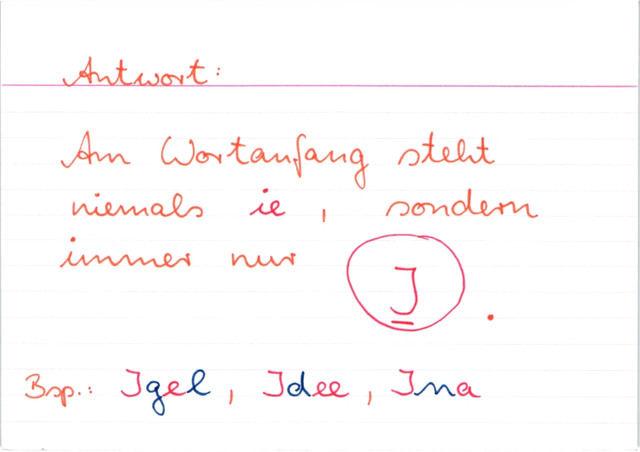 Antwort:
Am Wortanfang steht
niemals ie, sondern
immer nur I.
Bsp.: Igel, Idee, Ina